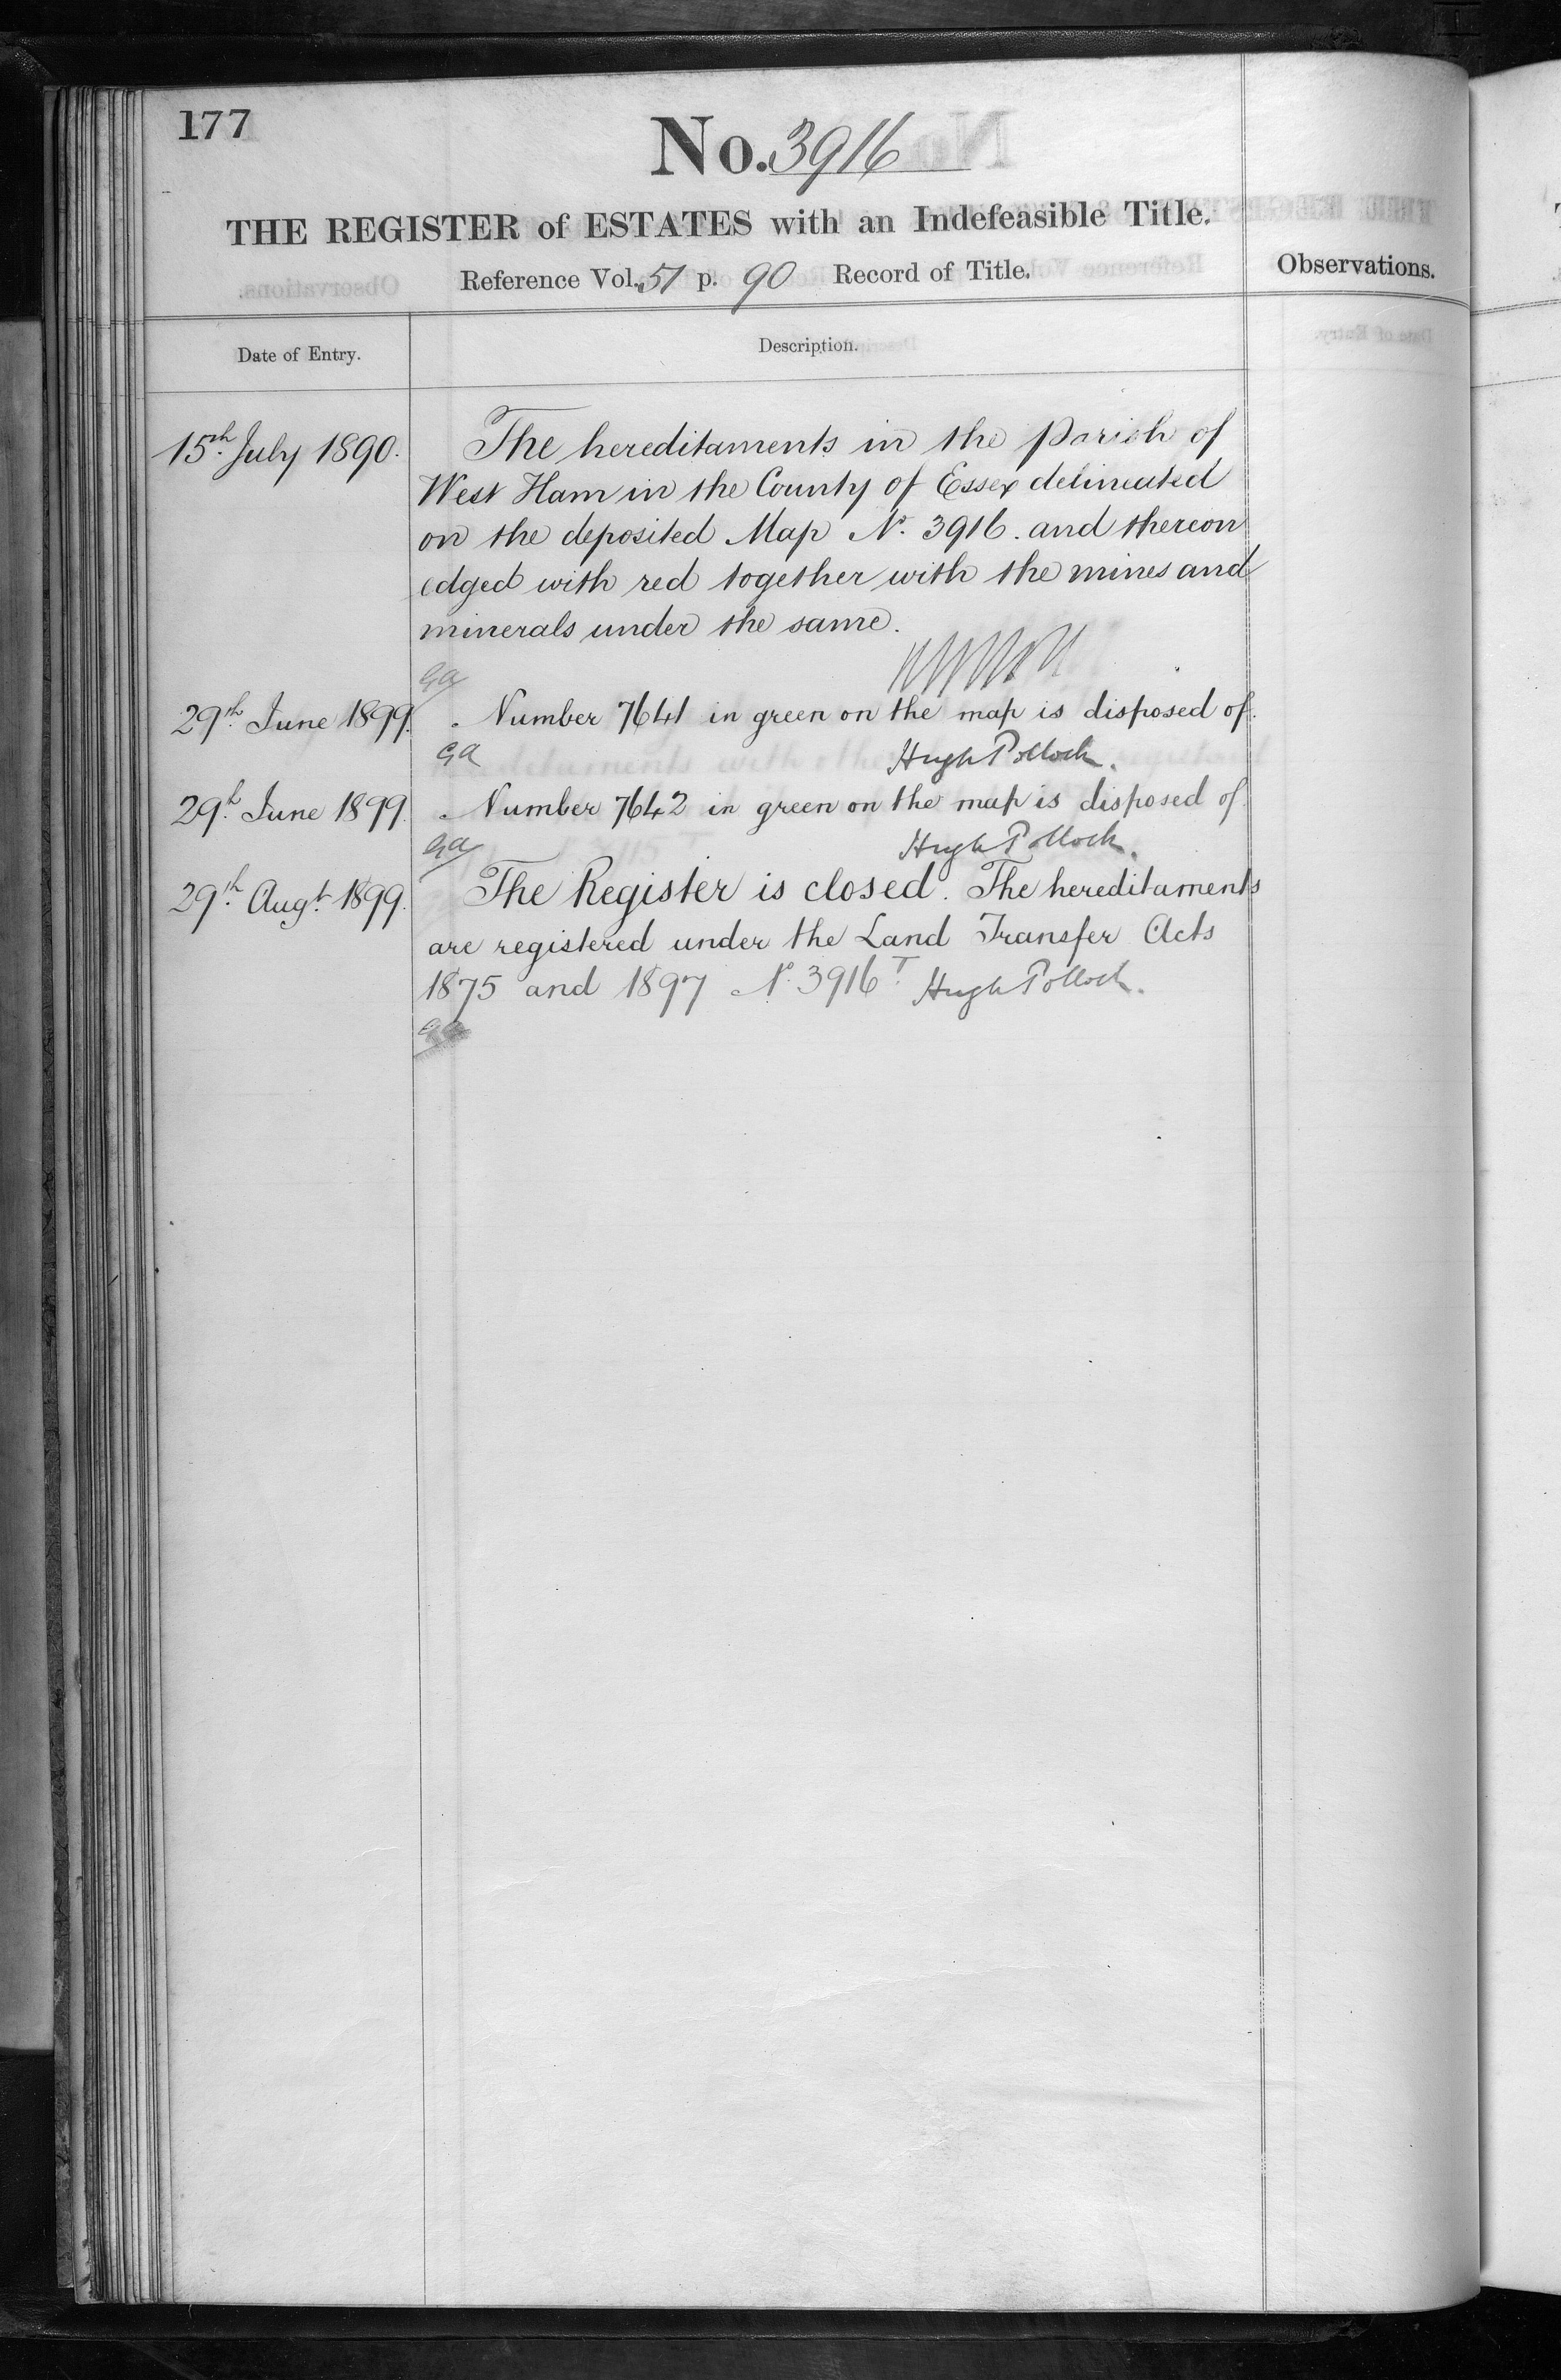 177
No. 3916
THE REGISTER of ESTATES with an Indefeasible Title.
Reference Vol. 51 p. 90 Record of Title.
Observations.
Date of Entry.
Description.
15th July 1890.
The hereditaments in the parish of
West Ham in the County of Essex delineated
on the deposited Map No. 3916. and thereon
edged with red together with the mines and
minerals under the same.
29th June 1899.
Number 7641 in green on the map is disposed of.
Hugh Pollock.
29th June 1899.
Number 7642 in green on the map is disposed of.
Hugh Pollock.
29th Augt. 1899.
The Register is closed. The hereditaments
are registered under the Land Transfer Acts
1875 and 1897 No. 3916T. Hugh Pollock.